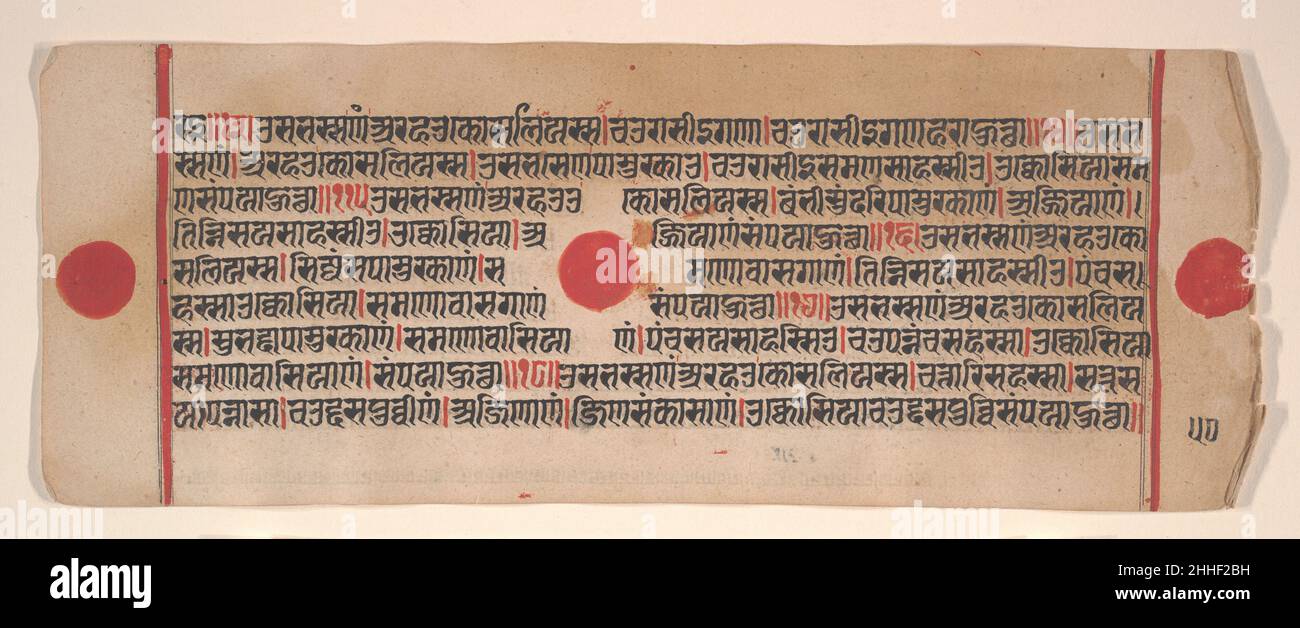 ॥उसभस्सणंअरहउकोसलियस्स।चउरासीइगणा।चउरासीइगणहराहुत्था॥उसभ
स्सणं।अरहउकोसलियस्स।उसभसेणपामुरकाउ।चउरासीइसमणसाहस्सीउ।उक्कोसियासम
णसंपयाहुत्था॥१५उसभस्सणंअरहउउ कोसलियस्स।बंभीसुंदरिपामुरकाणं।अज्जियाणं।।
तिन्निसयसाहस्सीउ।उक्कोसिया।अ ज्जियाणंसंपयाहुत्था॥१६॥उसभस्सणंअरहउको
सलियस्स।सिज्जंसपामुरकाणं।स मणोवासगाणं।तिन्निसयसाहस्सीउ।पंचसा
हस्साउक्कोसिया।समणोवासगाणं संपयाहुत्था॥१७॥उसभस्सणंअरहउकोसलिय
स्स।सुभद्दापामुरकाणं।समणोवासिया णं।पंचसयसाहस्सिउ।चउपन्नंचसहस्सा।उक्कोसिया
समणोवासियाणं।संपयाहुत्था॥१८॥उसभस्सणंअरहउकोसलियस्स।चत्तारिसहस्सा।सत्तस
यापन्नासा।चउद्दसपुव्वीणं।अजिणाणं।जिणसंकासाणं।उक्कोसियाचउद्दसपुव्विसंपयाहुत्था॥
५०
alamy
Image ID: 2HHF2BH
www.alamy.com